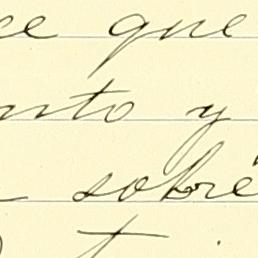 ce que
nto y
sobre